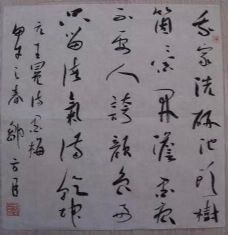 我家洗研池頭樹
箇々花開澹墨痕
不要人誇顏色好
只留清氣滿乾坤
元王冕詩墨梅
甲午之春